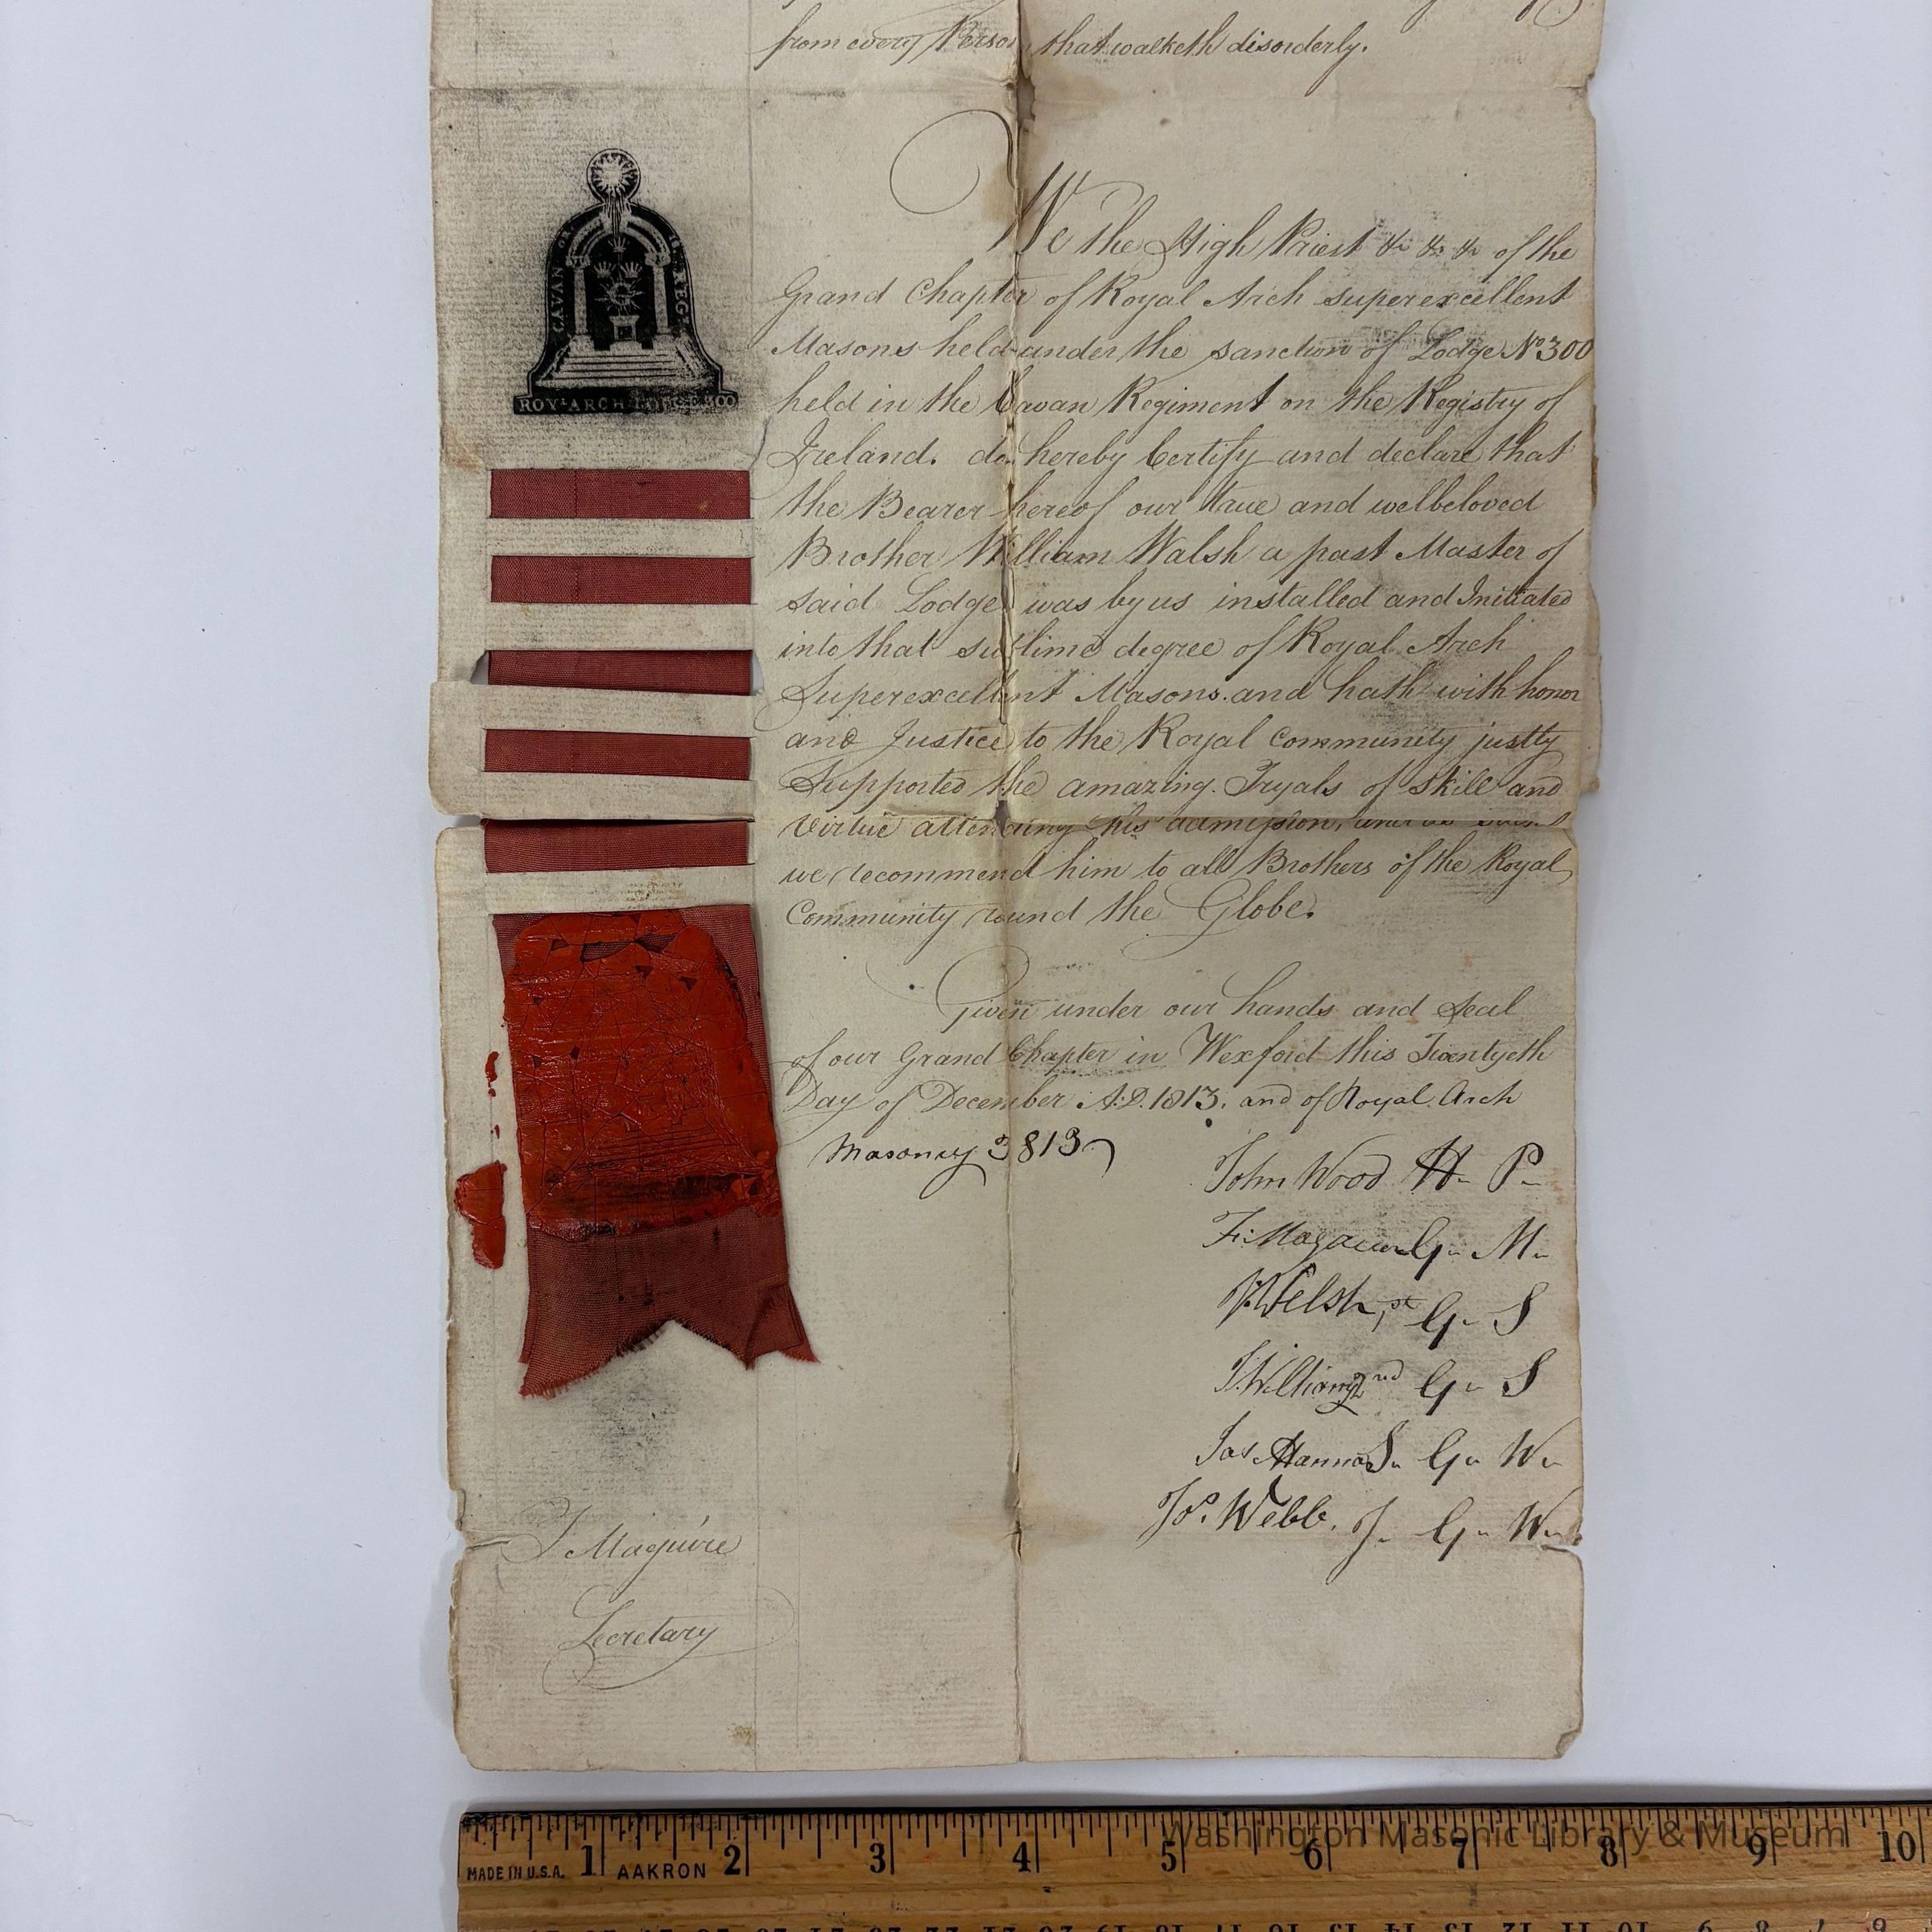 from every Person that walketh disorderly.
CAVAN OR
REG.
ROYL ARCH 300
We the High Priest &c &c &c of the
Grand Chapter of Royal Arch superexcellent
Masons held under the sanction of Lodge No 300
held in the Cavan Regiment on the Registry of
Ireland. do hereby Certify and declare that
the Bearer hereof our true and welbeloved
Brother William Walsh a past Master of
said Lodge was by us installed and Initiated
into that sublime degree of Royal Arch
Superexcellent Masons. and hath with honor
and Justice to the Royal Community justly
Supported the amazing. Tryals of skill and
Virtue attending his admission, and as such
we recommend him to all Brothers of the Royal
Community round the Globe.
Given under our hands and Seal
of our Grand Chapter in Wexford this Twentyeth
Day of December A.D. 1813. and of Royal Arch
Masonry 3813
John Wood H. P.
G. M.
Welsh 1st G. S
J. Williams 2nd G. S
Jas Hanna S. G. W.
Jos. Webb. J. G. W.
J Maguire
Secretary
Washington Masonic Library & Museum
1 2 3 4 5 6 7 8 9 10
MADE IN U.S.A. AAKRON